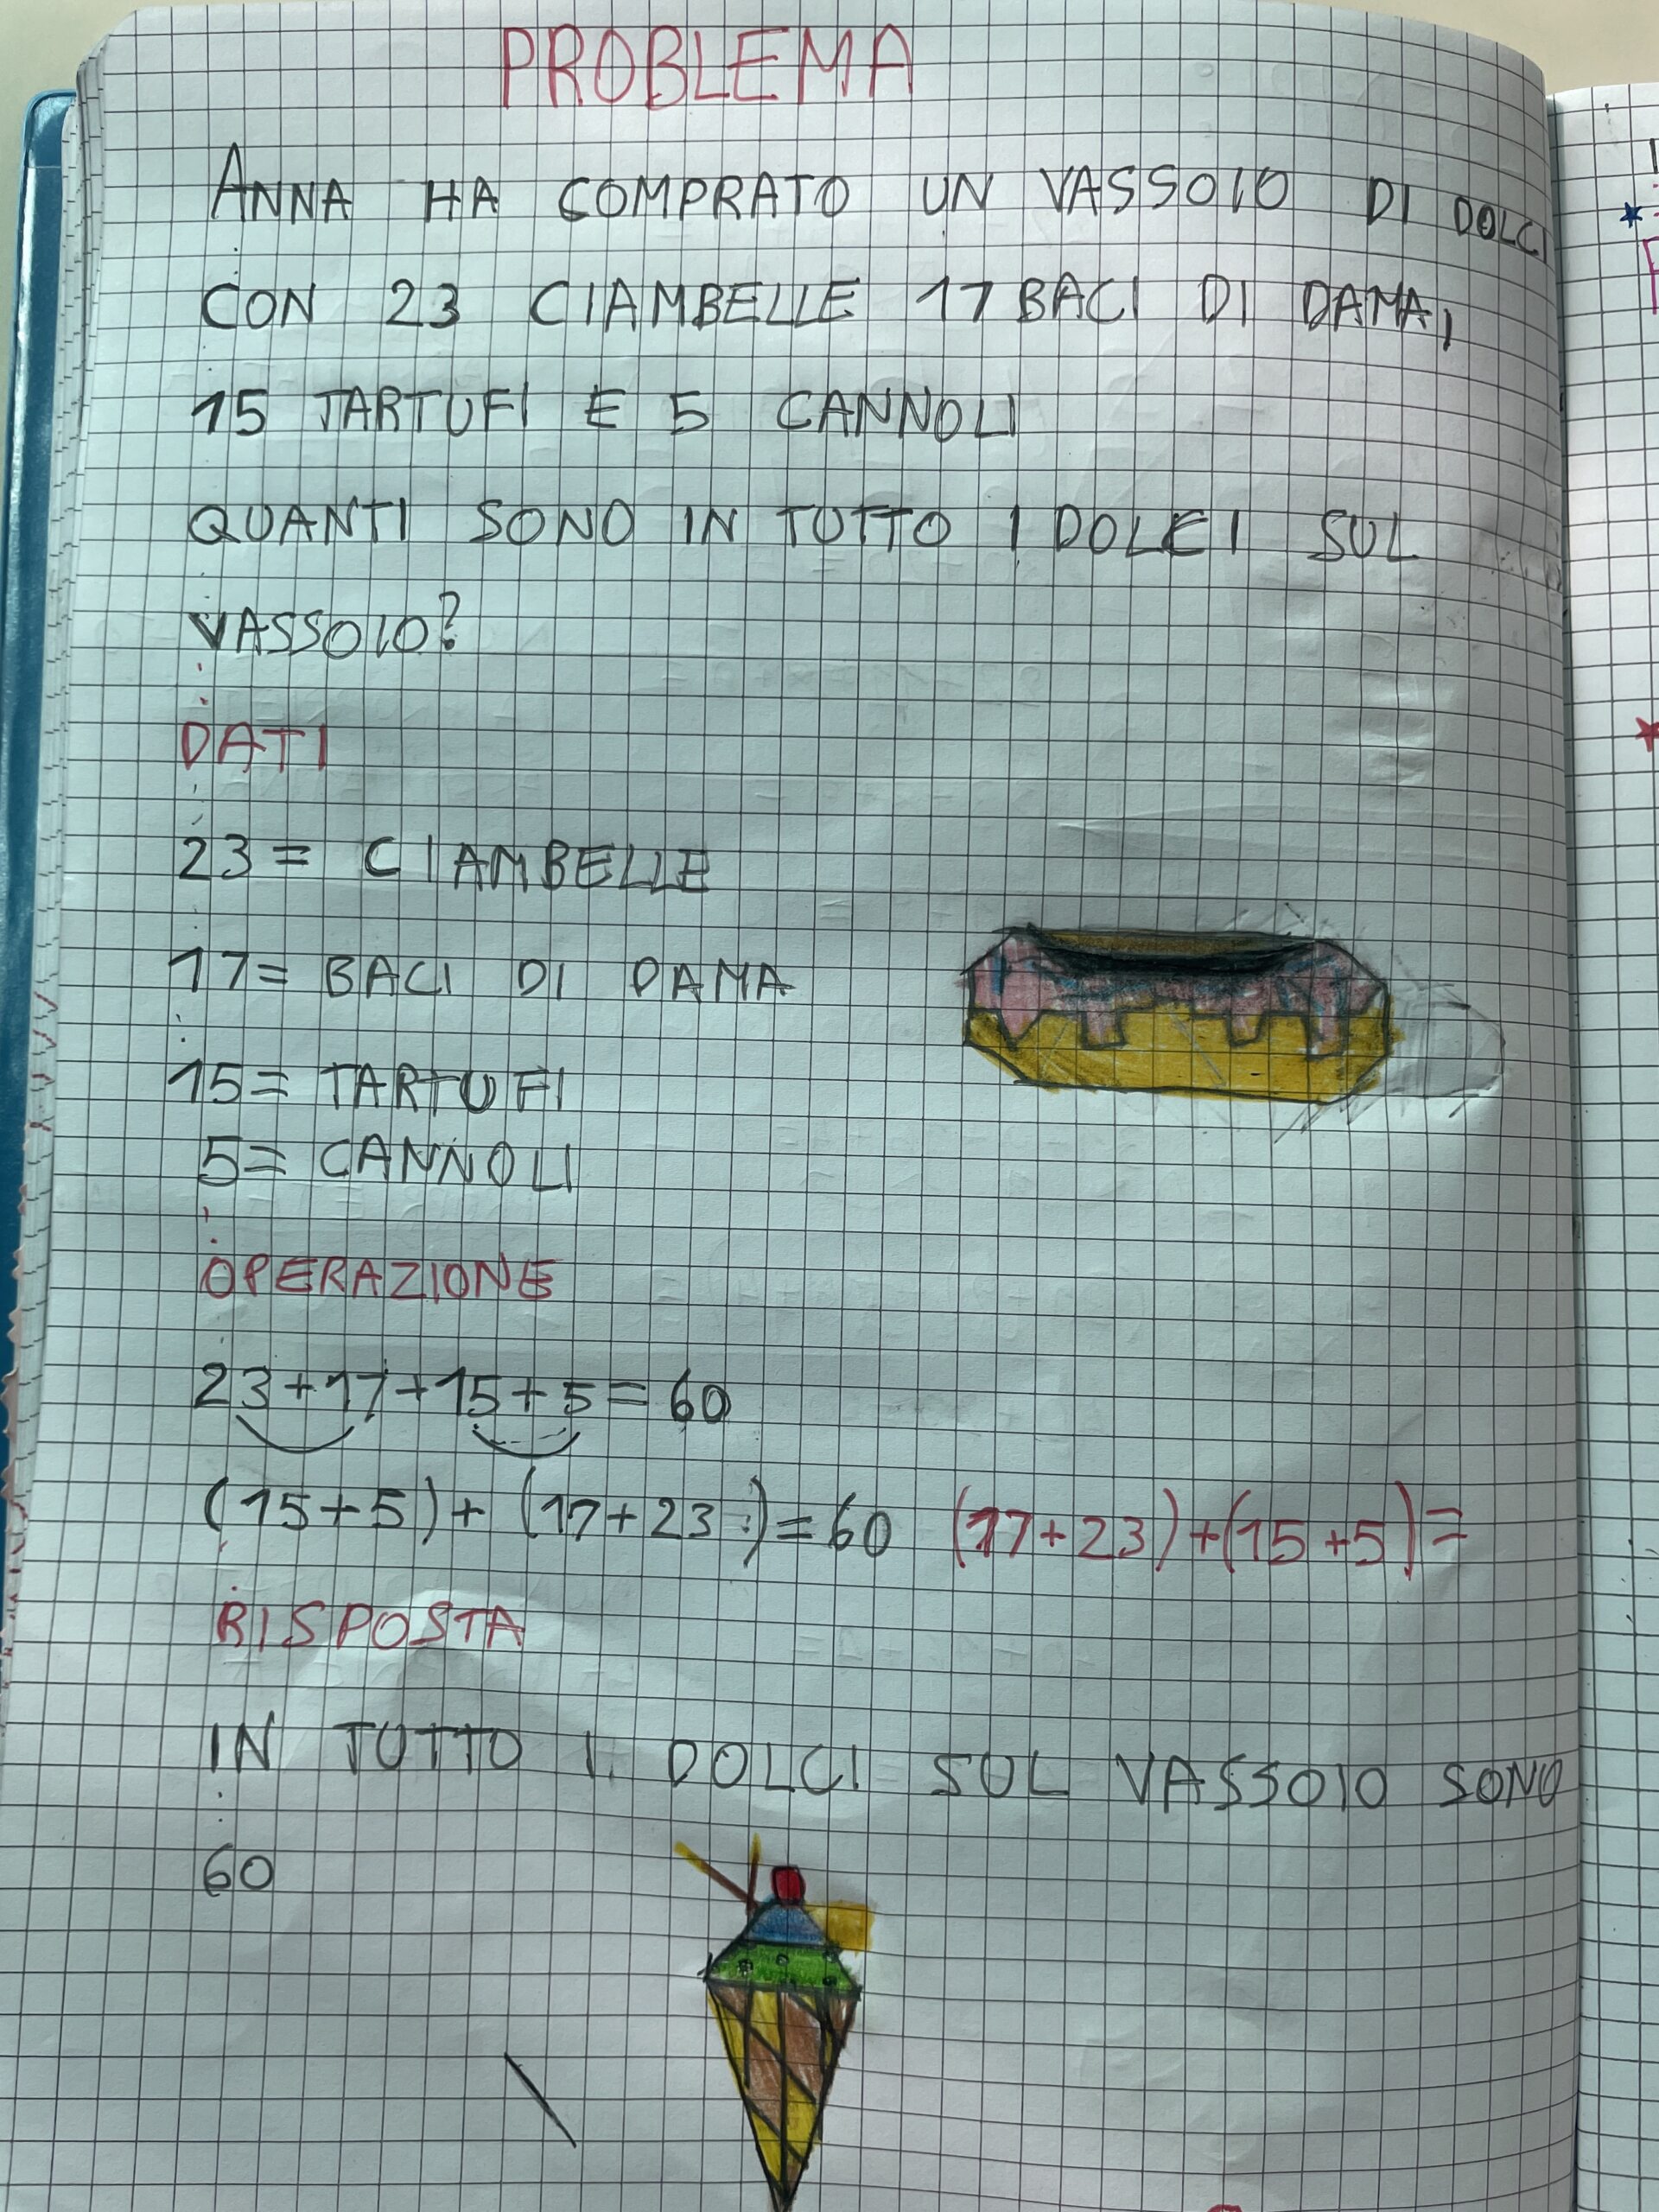 PROBLEMA
ANNA HA COMPRATO UN VASSOIO DI DOLCI
CON 23 CIAMBELLE 17 BACI DI DAMA,
15 TARTUFI E 5 CANNOLI
QUANTI SONO IN TUTTO I DOLCI SUL
VASSOIO?
DATI
23 = CIAMBELLE
17= BACI DI DAMA
15= TARTUFI
5= CANNOLI
OPERAZIONE
23+17+15+5=60
(15+5)+(17+23)=60 (17+23)+(15+5)=
RISPOSTA
IN TUTTO I DOLCI SUL VASSOIO SONO
60